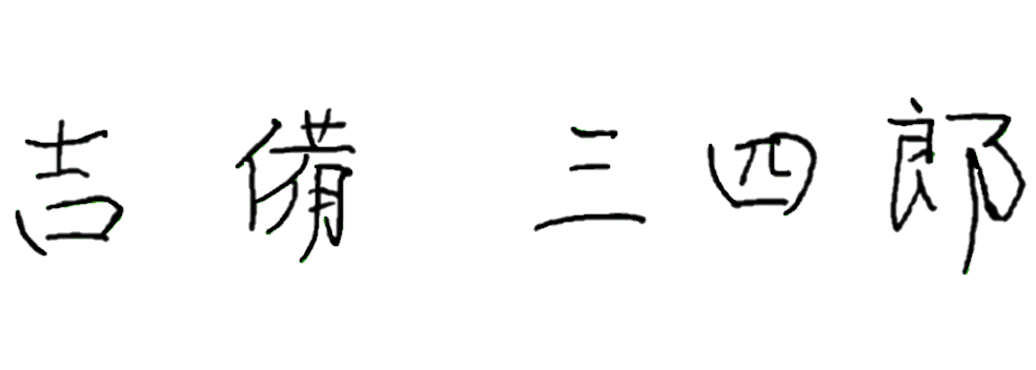 吉備 三四郎